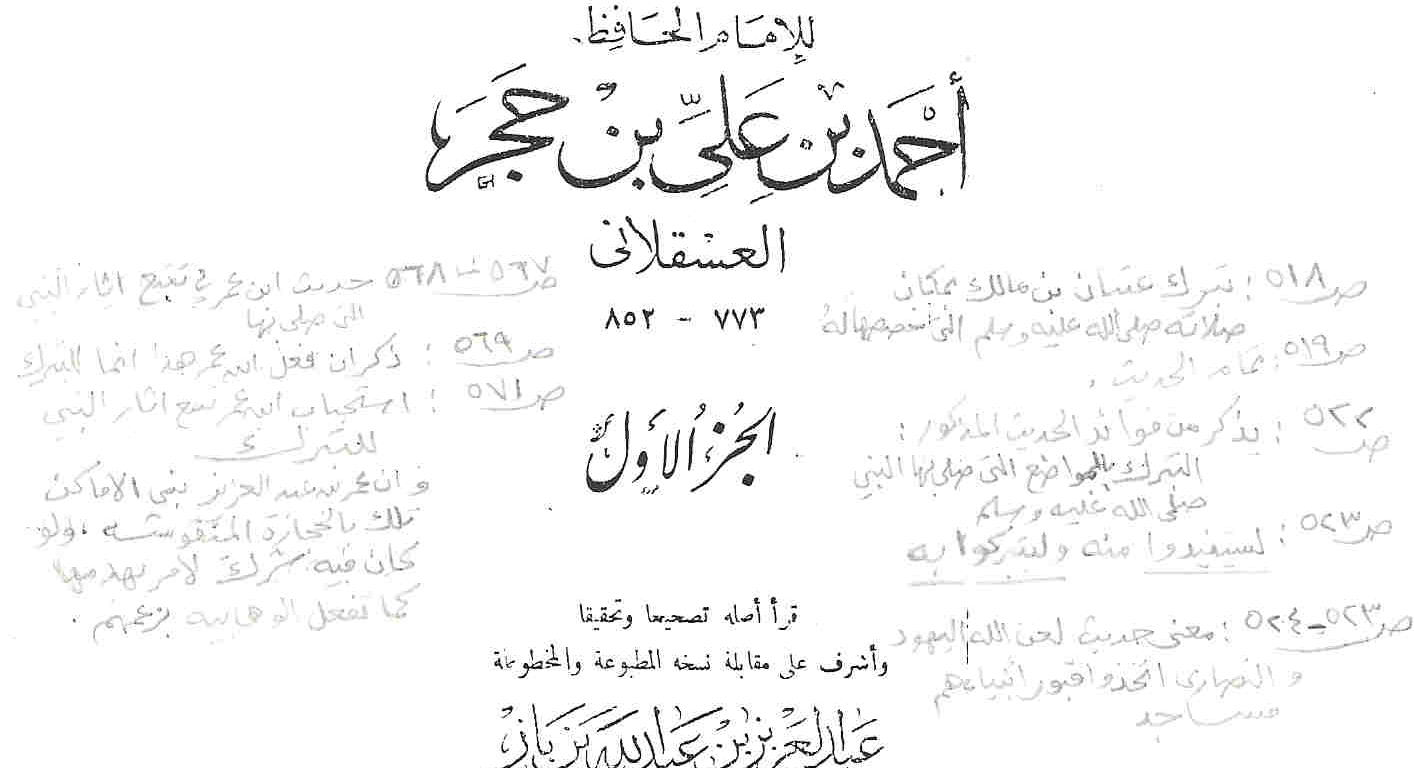 للإمام الحافظ
أحمد بن علي بن حجر
العسقلاني
٧٧٣ - ٨٥٢
الجزء الأول
قرأ أصله تصحيحا وتحقيقا
وأشرف على مقابلة نسخه المطبوعة والمخطوطة
عبد العزيز بن عبد الله بن باز
ص٥١٨ : تبرك عتبان بن مالك بمكان
صلاته صلى الله عليه وسلم التي
ص٥١٩ : تمام الحديث .
ص٥٢٢ : يذكر من فوائد الحديث المذكور :
التبرك بالمواضع التى صلى بها النبي
صلى الله عليه وسلم
ص٥٢٣ : ليستفيدوا منه وليتبركوا به
ص٥٢٣-٥٢٤ : معنى حديث لعن الله اليهود
و النصارى اتخذوا قبور أنبياءهم
مساجد
ص٥٦٧ - ٥٦٨ حديث ابن عمر في تتبع اثار النبي
التى صلى بها
ص٥٦٩ : ذكر ان فعل ابن عمر هذا انما للتبرك
ص٥٧١ : استحباب ابن عمر تتبع اثار النبي
للتبرك
و ان عمر بن عبد العزيز بنى الاماكن
تلك بالحجارة المنقوشة ، ولو
كان فيه شرك لامر بهدمها
كما تفعل الوهابية بزعمهم .